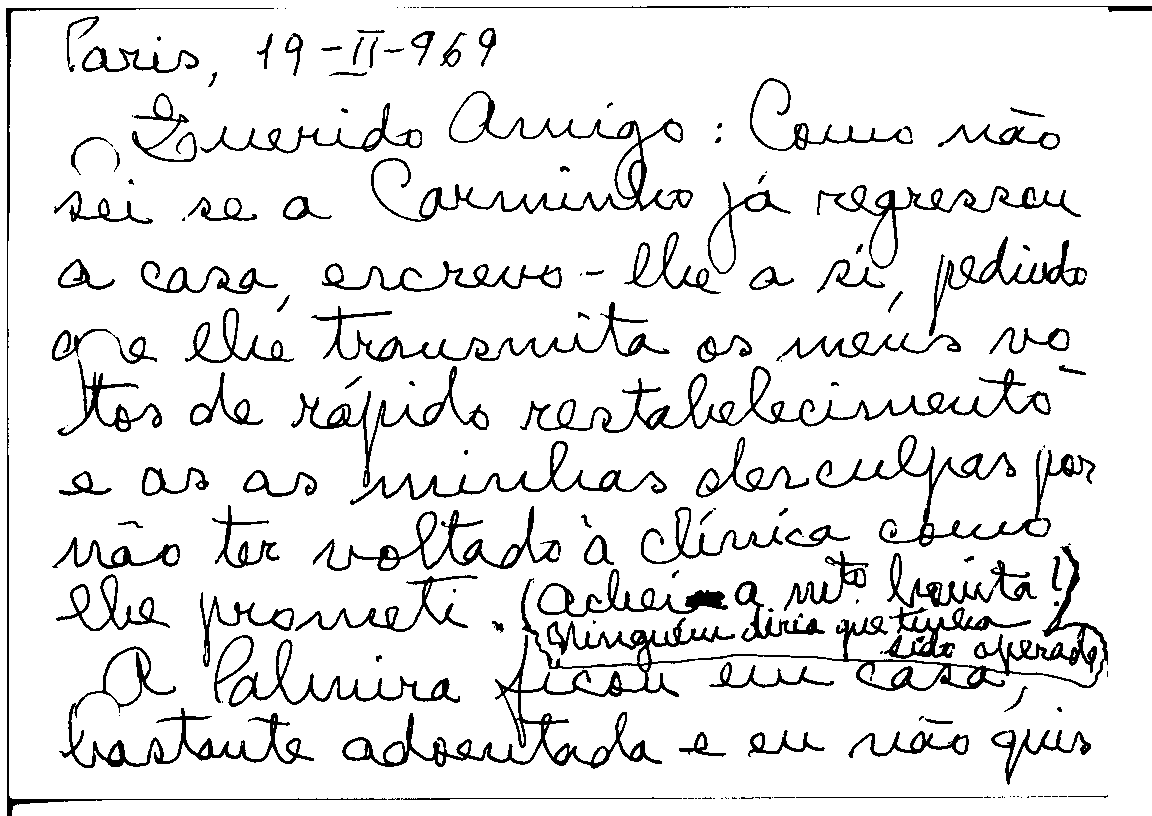 Paris, 19-II-969
Querido Amigo: Como não
sei se a Carminho já regressou
a casa, escrevo-lhe a si, pedindo
que lhe transmita os meus vo-
tos de rápido restabelecimento
e as as minhas desculpas por
não ter voltado à clínica como
lhe prometi. (achei-a mto. bonita!)
Ninguém diria que tinha
sido operada
A Palmira ficou em casa,
bastante adoentada e eu não quis